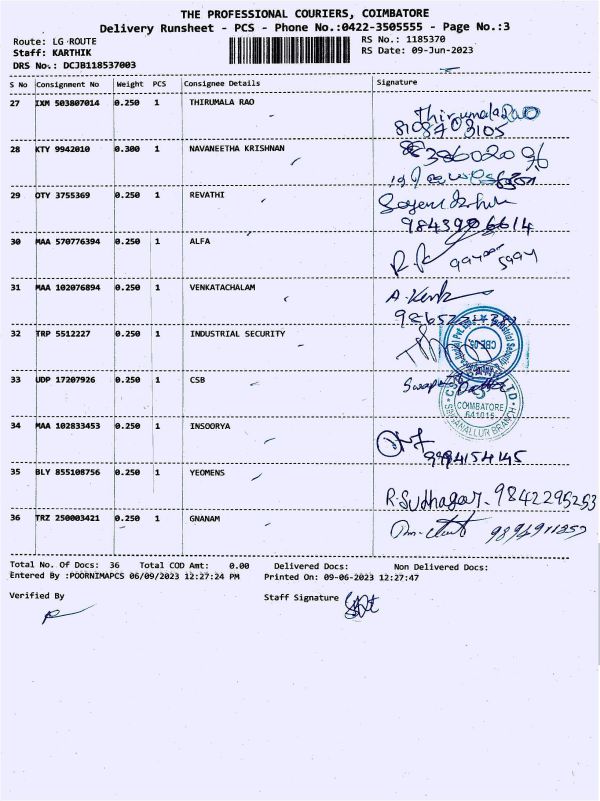 THE PROFESSIONAL COURIERS, COIMBATORE
Delivery Runsheet - PCS - Phone No.:0422-3505555 - Page No.:3
Route: LG ROUTE
RS No.: 1185370
Staff: KARTHIK
RS Date: 09-Jun-2023
DRS No.: DCJB118537003
S No Consignment No Weight PCS Consignee Details Signature
27 IXM 503807014 0.250 1 THIRUMALA RAO Thirumala Rao
8108703105
28 KTY 9942010 0.300 1 NAVANEETHA KRISHNAN
29 OTY 3755369 0.250 1 REVATHI
9843906614
30 MAA 570776394 0.250 1 ALFA
31 MAA 102076894 0.250 1 VENKATACHALAM A. Venk
32 TRP 5512227 0.250 1 INDUSTRIAL SECURITY
33 UDP 17207926 0.250 1 CSB
COIMBATORE
641015
34 MAA 102833453 0.250 1 INSOORYA
9994154145
35 BLY 855108756 0.250 1 YEOMENS
R. Sudhagar. 9842295253
36 TRZ 250003421 0.250 1 GNANAM
Total No. Of Docs: 36 Total COD Amt: 0.00 Delivered Docs: Non Delivered Docs:
Entered By :POORNIMAPCS 06/09/2023 12:27:24 PM Printed On: 09-06-2023 12:27:47
Verified By Staff Signature